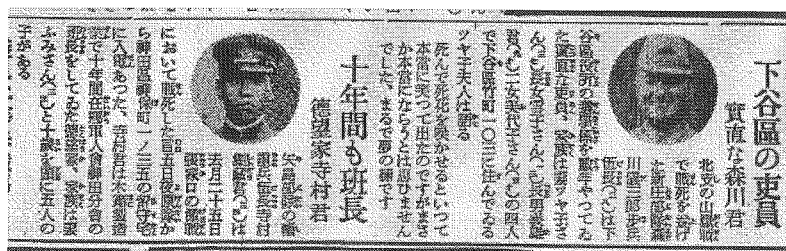 下谷區の吏員
實直な森川君
北支の山嶽戰
で戰死を遂げ
伍長(こ)は下
谷區役所の
た眞面目な吏員、家族は妻ツヤ子さ
ん(こ)長女雪子さん(こ)長男
君(こ)二女美代子さん(こ)の四人
で下谷區竹町一〇三に住んでゐる
ツヤ子夫人は語る
死んで死花を咲かせるといつて
本當に笑つて出たのですがまさ
か本當にならうとは思ひません
でした、まるで夢の樣です
十年間も班長
德望家寺村君
矢島部隊の
伍長寺村
君(こ)は
去月二十五日
張家口の激戰
において戰死した旨五日夜原隊か
ら神田區神保町一ノ三五の留守宅
に入電あつた、寺村君は木箱製造
業で十年間在鄕軍人會神田分會の
班長をしてゐた德望家、家族は妻
ふみさん(こ)と十歲を頭に五人の
子がある